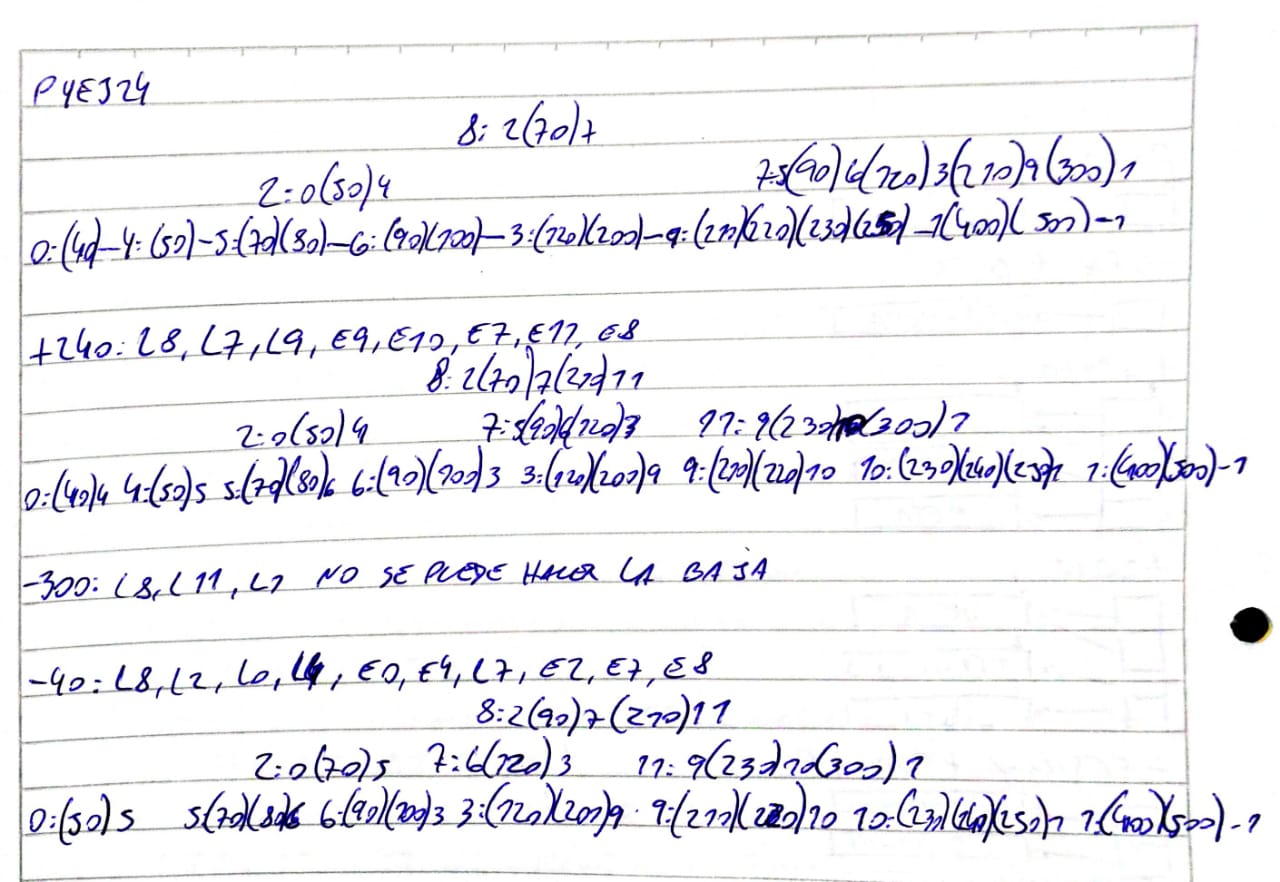 P4EJ24
8: 2(70)7
2:0(50)4 7:5(90)6(120)3(210)9(300)1
0:(40)-4:(50)-5:(70)(80)-6:(90)(100)-3:(120)(200)-9:(210)(220)(230)(250)-1(400)(500)-1
+240: L8, L7, L9, E9, E10, E7, E11, E8
8: 2(70)7(210)11
2:0(50)4 7:5(90)6(120)3 11:9(230)10(300)1
0:(40)4 4:(50)5 5:(70)(80)6 6:(90)(100)3 3:(120)(200)9 9:(210)(220)10 10:(230)(240)(250)1 1:(400)(500)-1
-300: L8, L11, L1 NO SE PUEDE HACER LA BAJA
-40: L8, L2, L0, L4, E0, E4, L7, E2, E7, E8
8:2(90)7(210)11
2:0(70)5 7:6(120)3 11:9(230)10(300)1
0:(50)5 5(70)(80)6 6:(90)(100)3 3:(120)(200)9 9:(210)(220)10 10:(230)(240)(250)1 1:(400)(500)-1